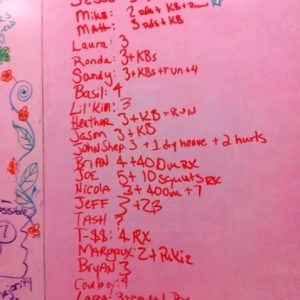 Mike: 2 Rds + KB + Run
Matt: 3 Rds + KB
Laura: 3
Ronda: 3 + KBs
Sandy: 3 + KBs + run + 4
Basil: 4
Lil' Kim: 3
Heather 3 + KB + RUN
Jason 3 + KB
John Shep 3 + 1 dry heave + 2 hurls
BRIAN 4 + 400m RX
JOE 5 + 10 squats RX
Nicola 3 + 400m + 7
JEFF 3 + 2B
TASH ?
T-$$: 4 RX
MARGAUX: 2 +
BRYAN 3
Cowboy: 4